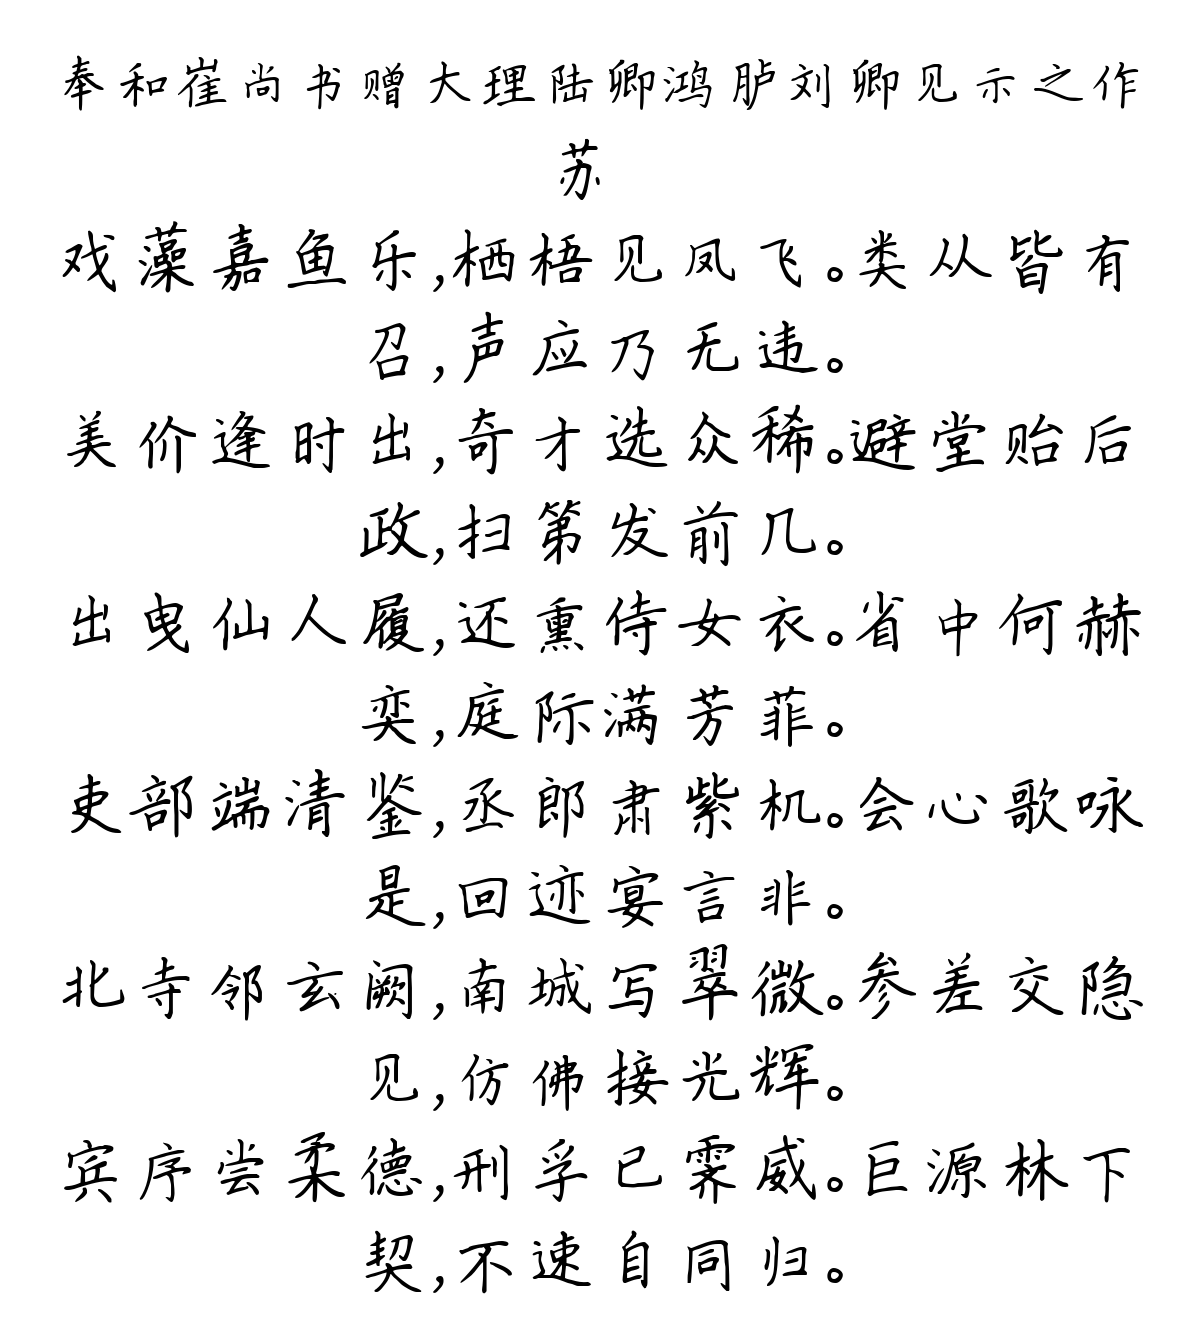 奉和崔尚书赠大理陆卿鸿胪刘卿见示之作
苏
戏藻嘉鱼乐,栖梧见凤飞。类从皆有
召,声应乃无违。
美价逢时出,奇才选众稀。避堂贻后
政,扫第发前几。
出曳仙人履,还熏侍女衣。省中何赫
奕,庭际满芳菲。
吏部端清鉴,丞郎肃紫机。会心歌咏
是,回迹宴言非。
北寺邻玄阙,南城写翠微。参差交隐
见,仿佛接光辉。
宾序尝柔德,刑孚已霁威。巨源林下
契,不速自同归。